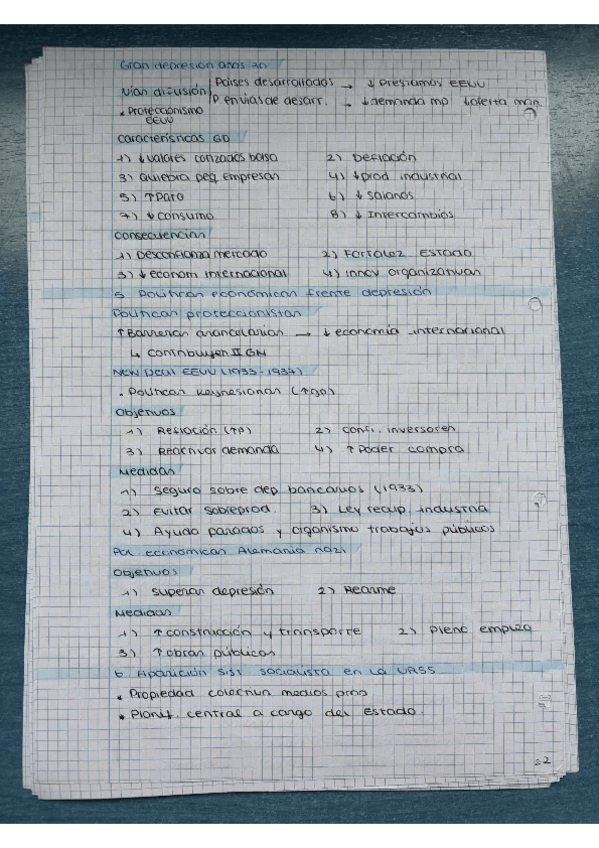 Gran depresión años 30
Vías difusión / Países desarrollados → ↓ Préstamos EEUU
P. en vías de desarr. → ↓ demanda mp ↓ oferta man.
• Proteccionismo EEUU
Características GD
1) ↓ valores cotizados bolsa 2) Deflación
3) Quiebra peq empresas 4) ↓ prod industrial
5) ↑ Paro 6) ↓ Salarios
7) ↓ Consumo 8) ↓ Intercambios
Consecuencias
1) Desconfianza mercado 2) Fortalez Estado
3) ↓ econom internacional 4) innov organizativas
5. Políticas económicas frente depresión
Políticas proteccionistas
↑ Barreras arancelarias → ↓ economía internacional
↳ contribuyen II GM
New Deal EEUU (1933-1937)
• Políticas Keynesianas (↑GP)
Objetivos
1) Reflación (↑P) 2) Conf. inversores
3) Reactivar demanda 4) ↑ Poder compra
Medidas
1) Seguro sobre dep bancarios (1933)
2) Evitar sobreprod 3) Ley recup industria
4) Ayuda parados y organismo trabajos públicos
Pol económicas Alemania nazi
Objetivos
1) Superar depresión 2) Rearme
Medidas
1) ↑ construcción y transporte 2) Pleno empleo
3) ↑ obras públicas
6. Aparición sist socialista en la URSS
• Propiedad colectiva medios prod
• Planif. central a cargo del Estado.
2